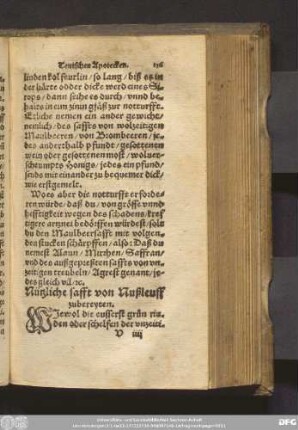 Teutschen Apotecken. 156
linden kolfeurlin/ so lang/ biß es in
der härte odder dicke werd eines Si-
rops/ dann seihe es durch/ vnnd be-
halts in eim zinin gfäß zur notturfft.
Etliche nemen ein ander gewicht/
nemlich/ des saffts von wolzeitigen
Maulbeeren/ von Brombeeren/ je-
des anderthalb pfundt/ gesottenen
wein oder gesottenen most/ woluer-
schaumpts Honigs/ jedes ein pfund/
sends mit einander zu bequemer dick/
wie erstgemelt.
Wo es aber die notturfft erforde-
ren würde/ daß du/ von grösse vnnd
hefftigkeit wegen des schadens/ kreff
tigere artznei bedörffen würdest/ solt
du den Maulbeersafft mit volgen-
den stucken schärpffen/ also: Daß du
nemest Alaun/ Mirrhen/ Saffran/
vnd des außgepreßten saffts von vn-
zeitigen treubeln/ Agrest genant/ je-
des gleich vil/ ec.
Nützliche safft von Nußleuff
zubereyten.
Wiewol die eusserst grün rin-
den oder schelfen der vnzeiti-
V iiij